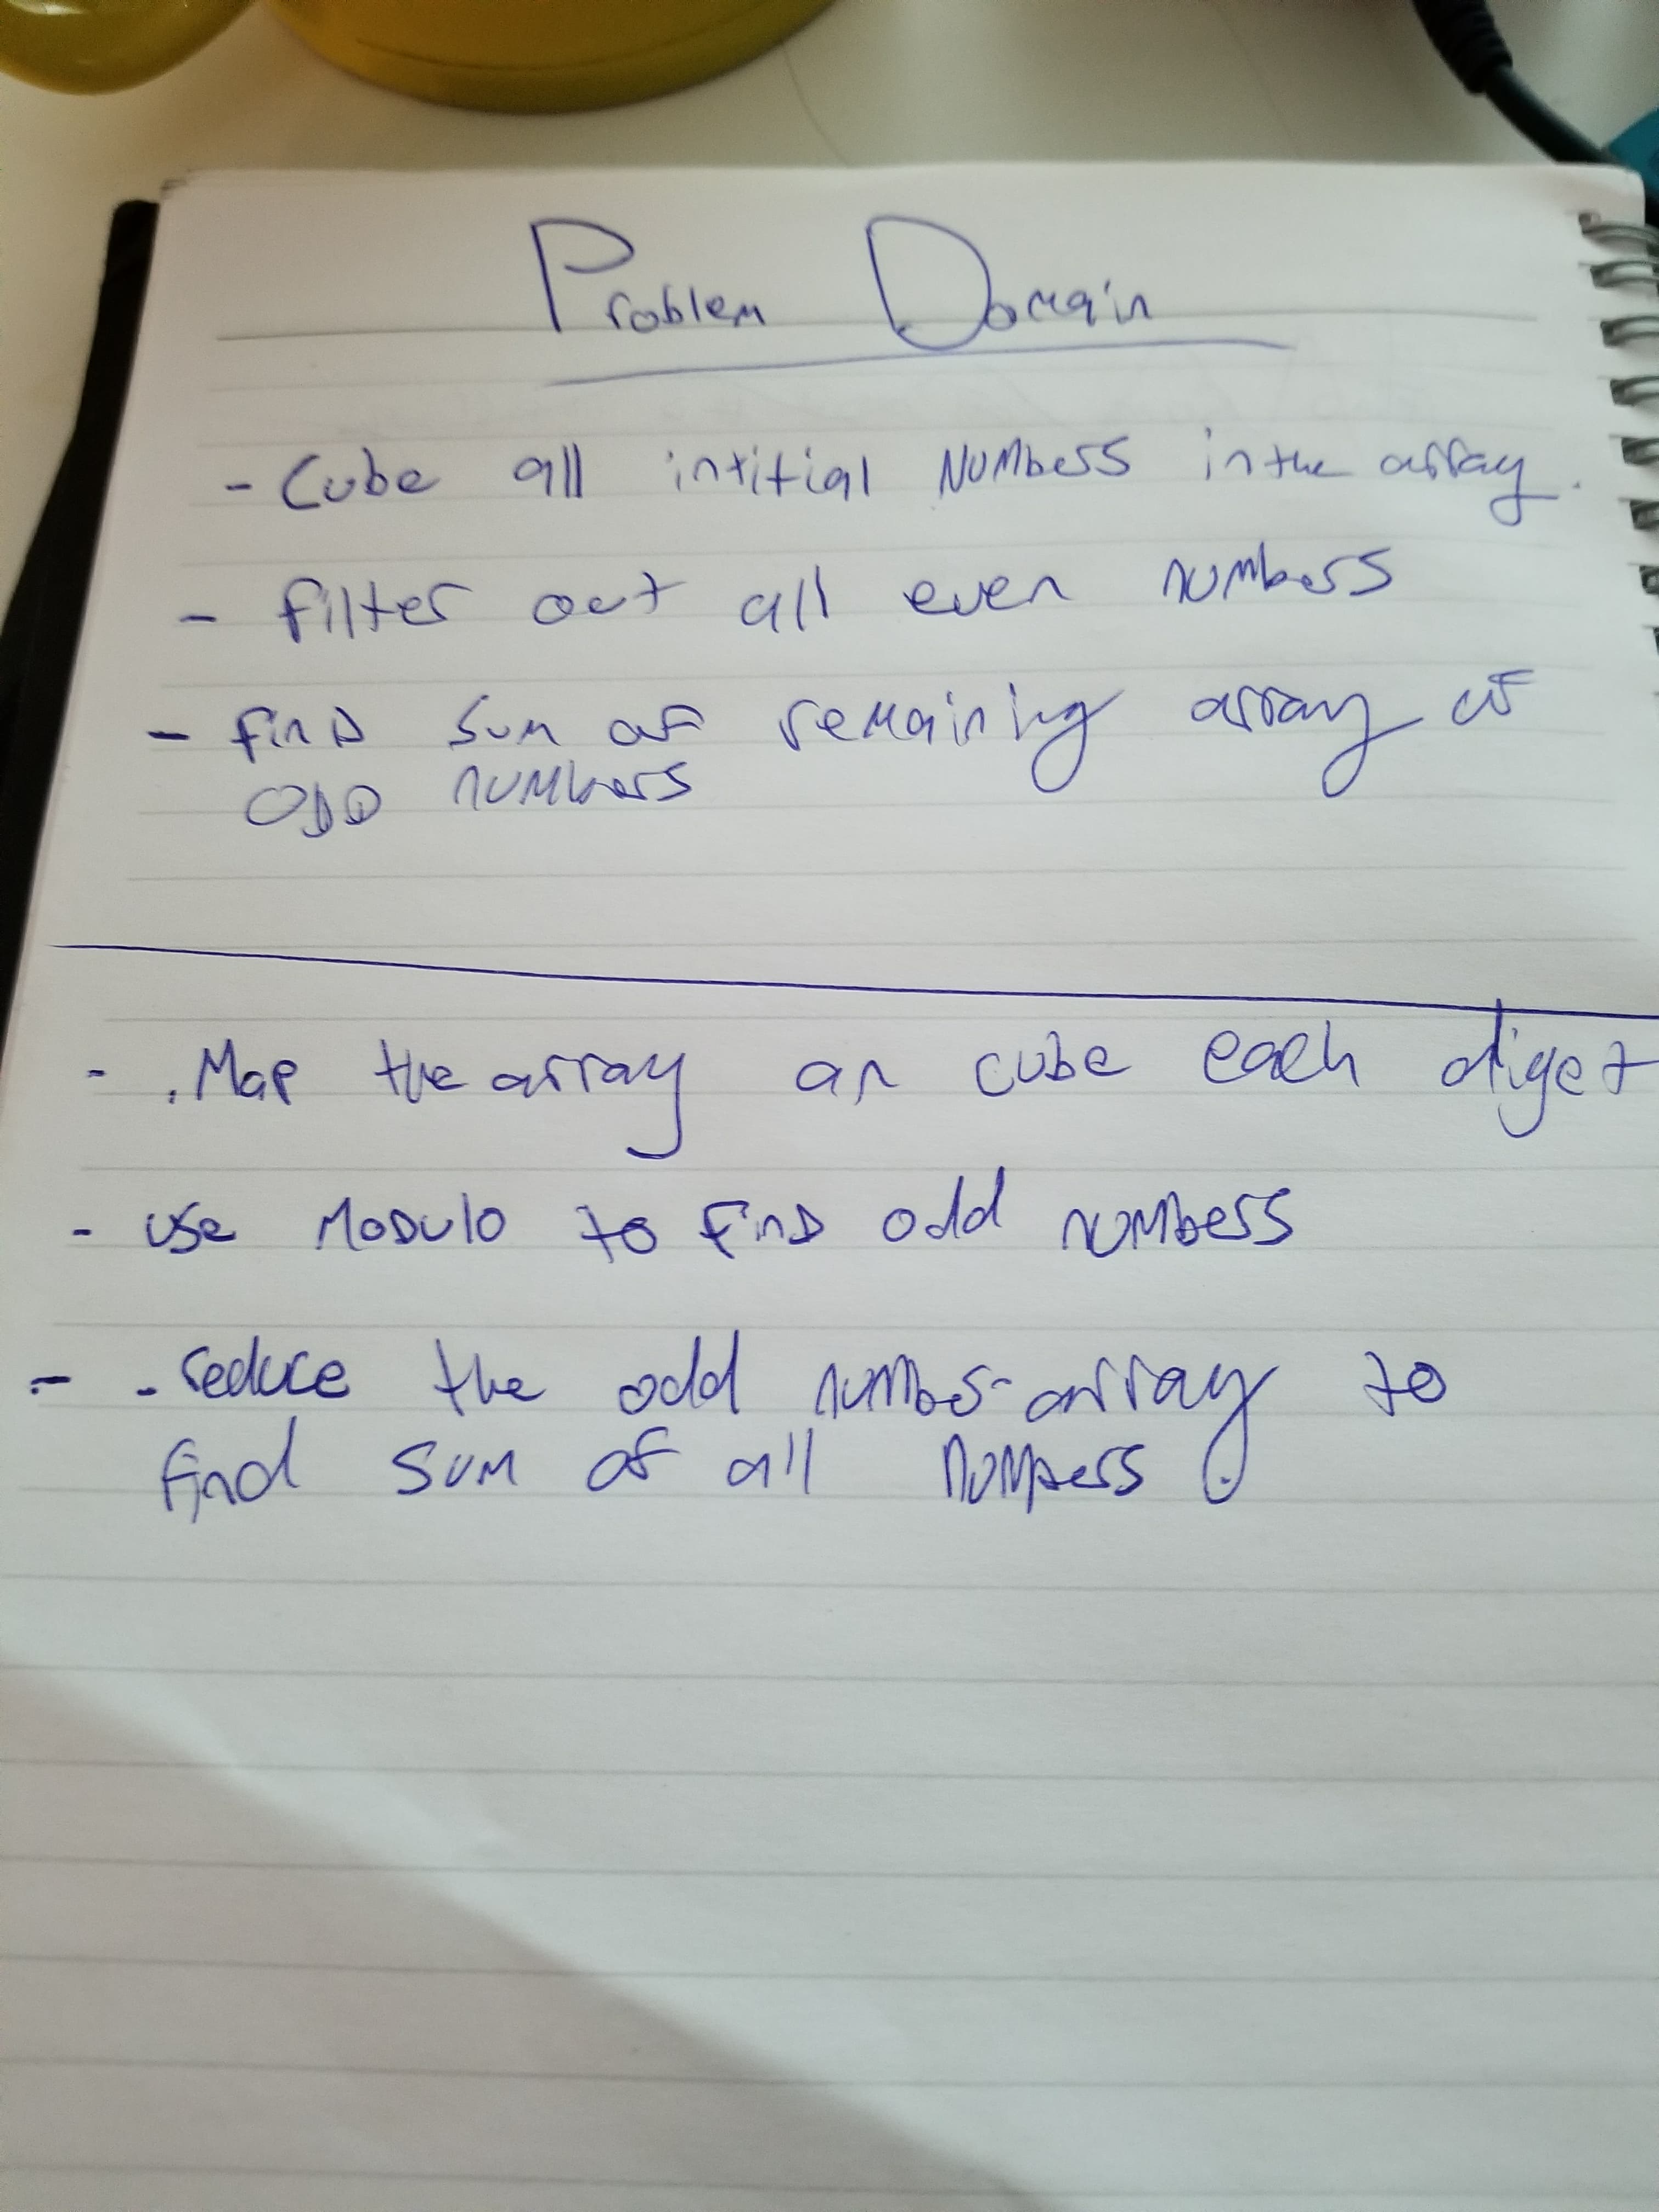 Problem Domain
- Cube all intitial Numbers in the array.
- filter out all even numbers
- find sum of remaining array of
ODD numbers
- .Map the array an cube each diget
- use Modulo to find odd numbers
- .reduce the odd number-array to
find sum of all numbers.